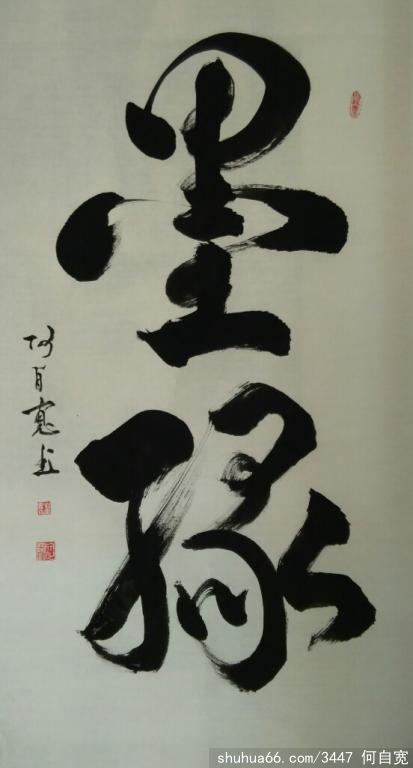 墨缘
何自宽书
shuhua66.com/3447 何自宽